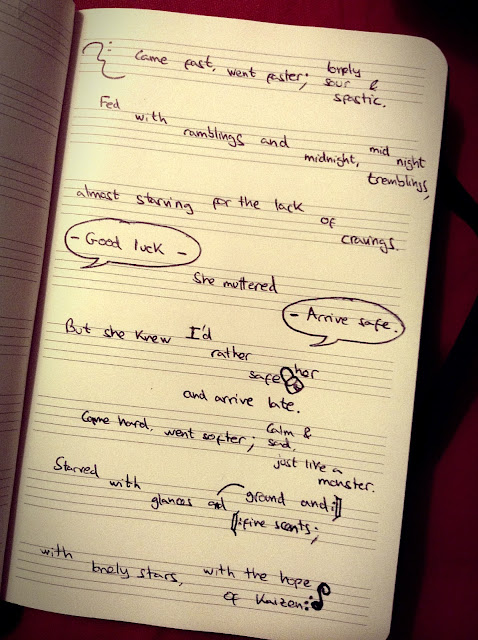 Came fast, went faster; lonely
sour &
spastic.
Fed with
ramblings and
midnight, mid
night
tremblings,
almost starving for the lack
of
cravings.
- Good luck -
She muttered
- Arrive safe.
But she knew I'd
rather
safe her
and arrive late.
Came hard, went softer; calm &
sad,
just like a
monster.
Starved with
glances and ground and
fine scents;
with
lonely stars, with the hope
of Kaizen